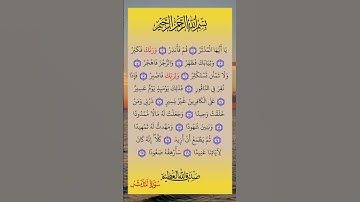 بِسْمِ اللهِ الرَّحْمٰنِ الرَّحِيْمِ
يَا أَيُّهَا الْمُدَّثِّرُ قُمْ فَأَنذِرْ وَرَبَّكَ فَكَبِّرْ
وَثِيَابَكَ فَطَهِّرْ وَالرُّجْزَ فَاهْجُرْ
وَلَا تَمْنُن تَسْتَكْثِرُ وَلِرَبِّكَ فَاصْبِرْ فَإِذَا
نُقِرَ فِي النَّاقُورِ فَذَلِكَ يَوْمَئِذٍ يَوْمٌ عَسِيرٌ
عَلَى الْكَافِرِينَ غَيْرُ يَسِيرٍ ذَرْنِي وَمَنْ
خَلَقْتُ وَحِيدًا وَجَعَلْتُ لَهُ مَالًا مَّمْدُودًا
وَبَنِينَ شُهُودًا وَمَهَّدتُّ لَهُ تَمْهِيدًا
ثُمَّ يَطْمَعُ أَنْ أَزِيدَ كَلَّا إِنَّهُ كَانَ
لِآيَاتِنَا عَنِيدًا سَأُرْهِقُهُ صَعُودًا
صدق الله العظيم
سورة المدثر